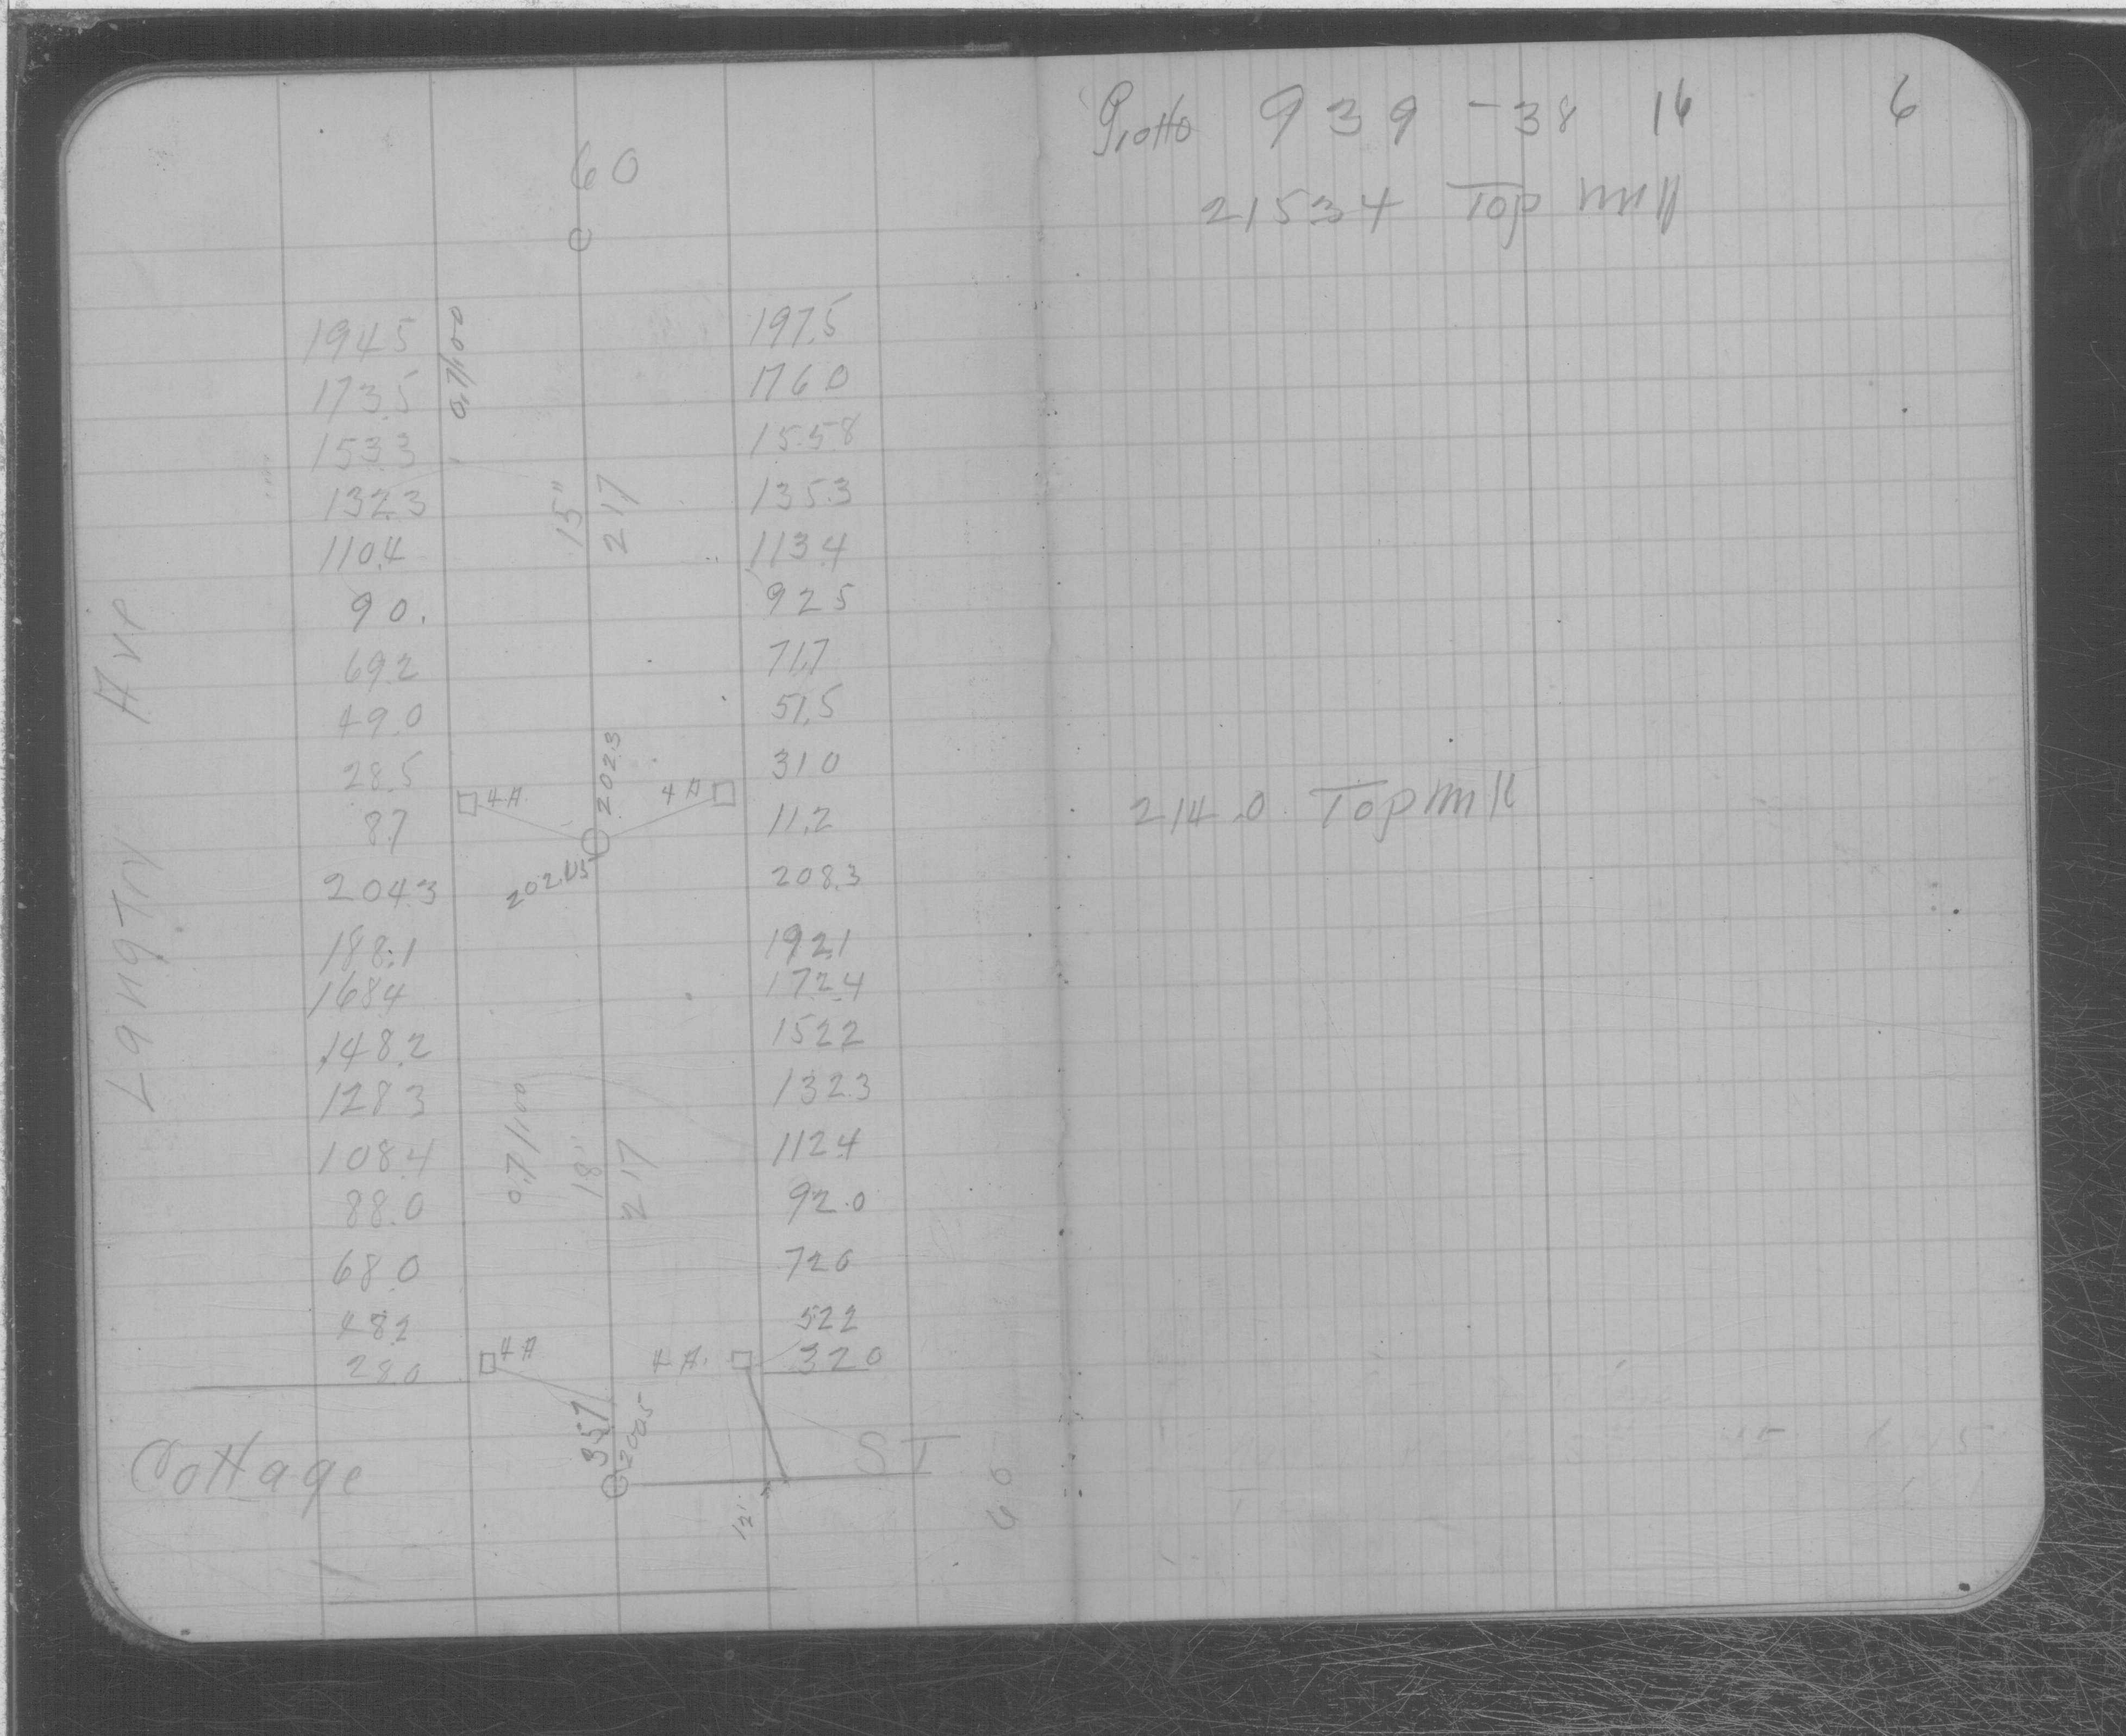 60
194.5 0.7/100 197.5
173.5 176.0
153.3 155.8
132.3 15" 217 135.3
110.4 113.4
90. 92.5
69.2 71.7
49.0 51.5
28.5 202.3 31.0
8.7 4A 4A 11.2
204.3 208.3
188.1 192.1
168.4 172.4
148.2 152.2
128.3 132.3
108.4 0.7/100 18" 217 112.4
88.0 92.0
68.0 72.0
48.2 52.2
28.0 4A 4A. 32.0
Langtry Ave
357 200.5
Cottage ST
12" 60
939-38 16 6
215.34 Top mH
214.0 Top mH